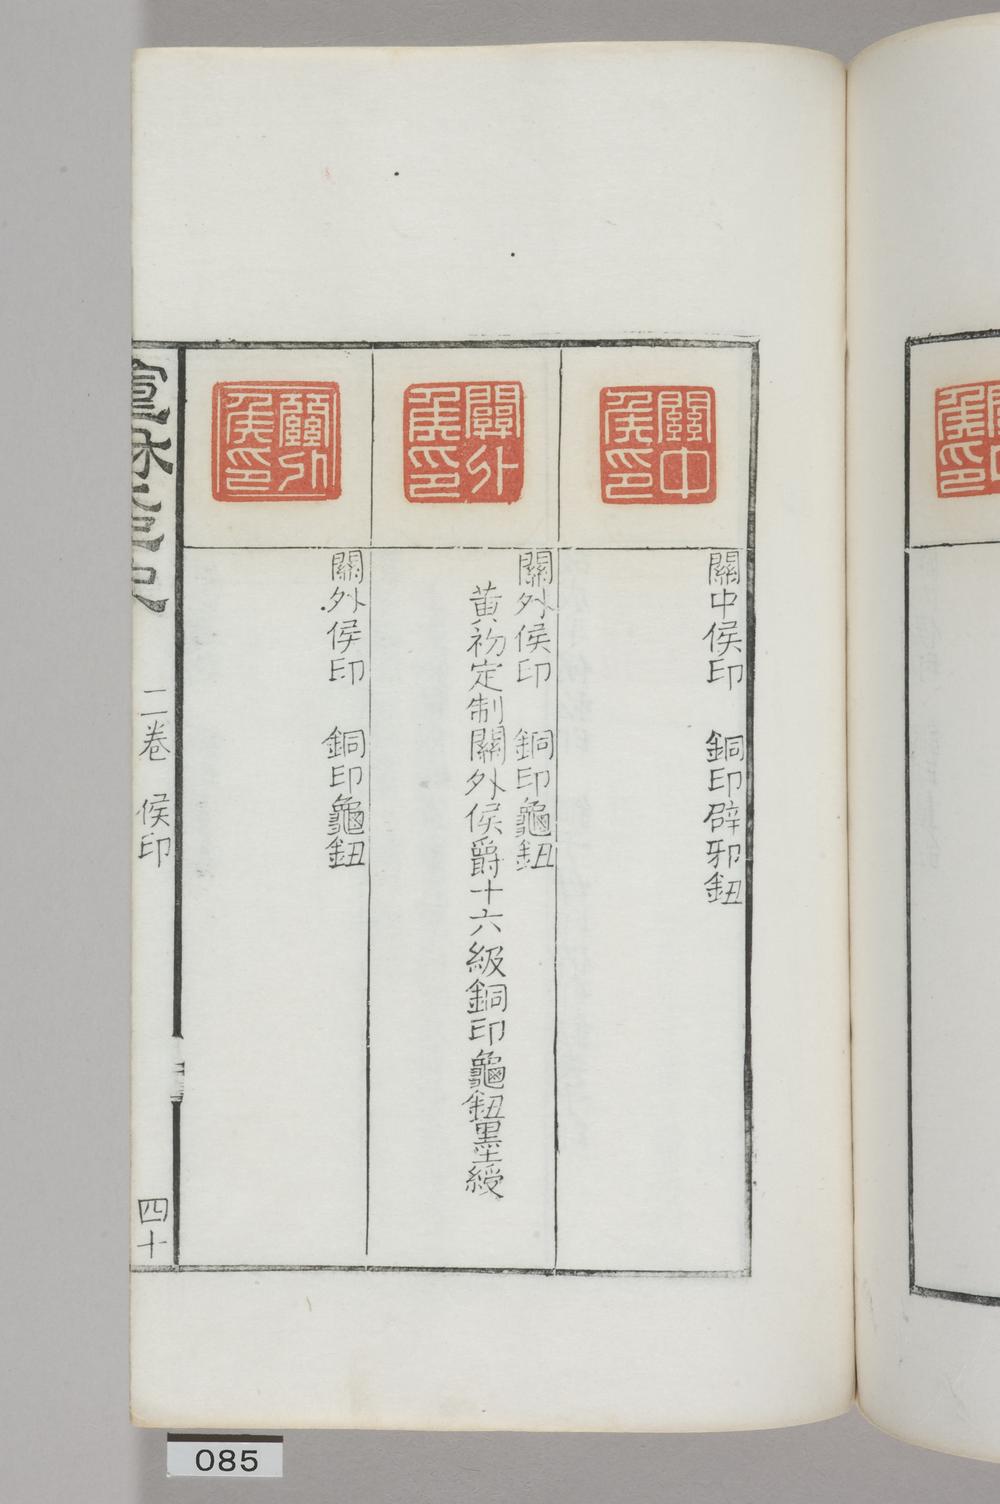 關中侯印
關中侯印 銅印辟邪鈕
關外侯印
關外侯印 銅印龜鈕
黃初定制關外侯爵十六級銅印龜鈕墨綬
關外侯印
關外侯印 銅印龜鈕
二卷 侯印
四十
085